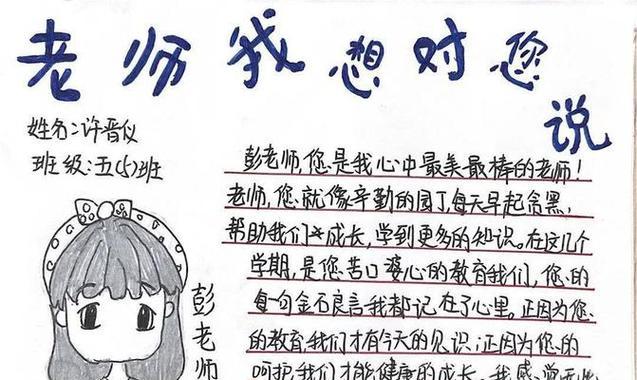 老师我想对您
说
姓名:许晋仪
班级:五(5)班
彭老师,您是我心中最美最棒的老师!
老师,您就像辛勤的园丁,每天早起贪黑,
帮助我们成长,学到更多的知识。在这几个
学期,是您苦口婆心的教育我们,您的
每一句金石良言我都记在了心里。正因为您
的教育,我们才有今天的见识;正因为您的
呵护,我们才能健康的成长。我感觉无比
彭老师